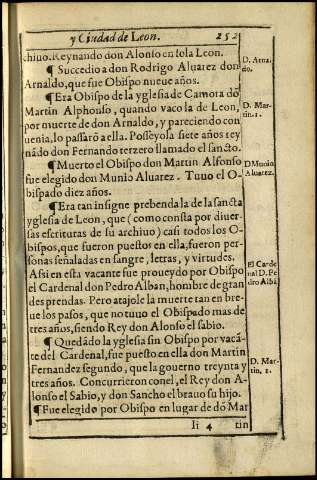 y Ciudad de Leon. 252
chiuo. Reynando don Alonso en sola Leon.
¶ Succedio a don Rodrigo Aluarez don
Arnaldo, que fue Obispo nueue años.
D. Arnal
do.
¶ Era Obispo de la yglesia de Camora dõ
Martin Alphonso, quando vaco la de Leon,
por muerte de don Arnaldo, y pareciendo con
uenia, lo passarõ a ella. Posseyola siete años rey
nãdo don Fernando terzero llamado el sancto.
D. Mar-
tin. 1.
¶ Muerto el Obispo don Martin Alfonso
fue elegido don Munio Aluarez. Tuuo el O-
bispado diez años.
D Munio
Aluarez.
¶ Era tan insigne prebenda la de la sancta
yglesia de Leon, que (como consta por diuer-
sas escrituras de su archiuo) casi todos los O-
bispos, que fueron puestos en ella, fueron per-
sonas señaladas en sangre, letras, y virtudes.
Assi en esta vacante fue proueydo por Obispo
el Cardenal don Pedro Alban, hombre de gran
des prendas. Pero atajole la muerte tan en bre-
ue los pasos, que no tuuo el Obispado mas de
tres años, siendo Rey don Alonso el sabio.
El Carde
nal D. Pe
dro Albã.
¶ Quedãdo la yglesia sin Obispo por vacã-
te del Cardenal, fue puesto en ella don Martin
Fernandez segundo, que la gouerno treynta y
tres años. Concurrieron con el, el Rey don A-
lonso el Sabio, y don Sancho el brauo su hijo.
D. Mar-
tin. 2.
¶ Fue elegido por Obispo en lugar de dõ Mar
Ii 4 tin